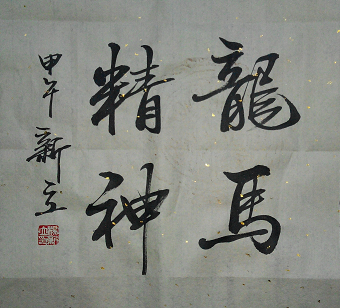 龍馬
精神
甲午新立